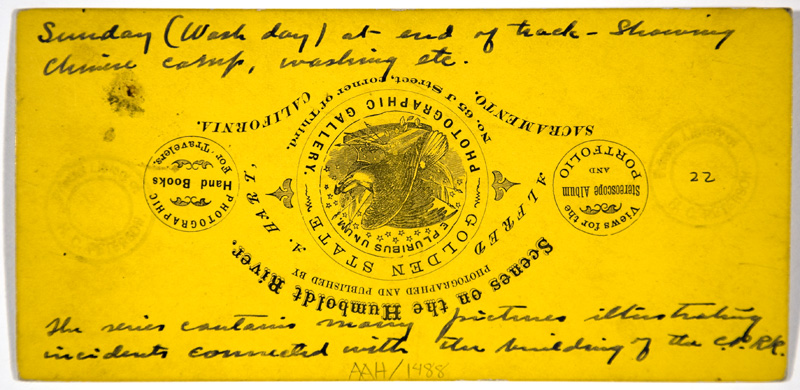 Sunday (Wash day) at end of track - Showing
Chinese camp, washing etc.
Scenes on the Humboldt River.
PHOTOGRAPHED AND PUBLISHED BY
ALFRED A. HART,
GOLDEN STATE
PHOTOGRAPHIC GALLERY.
E PLURIBUS UNUM
No. 65 J Street, corner of Third,
SACRAMENTO, CALIFORNIA.
Views for the
Stereoscope Album
AND
PORTFOLIO
PHOTOGRAPHIC
Hand Books
For Travelers.
22
The series contains many pictures illustrating
incidents connected with the building of the C.P.RR.
AAH/1488